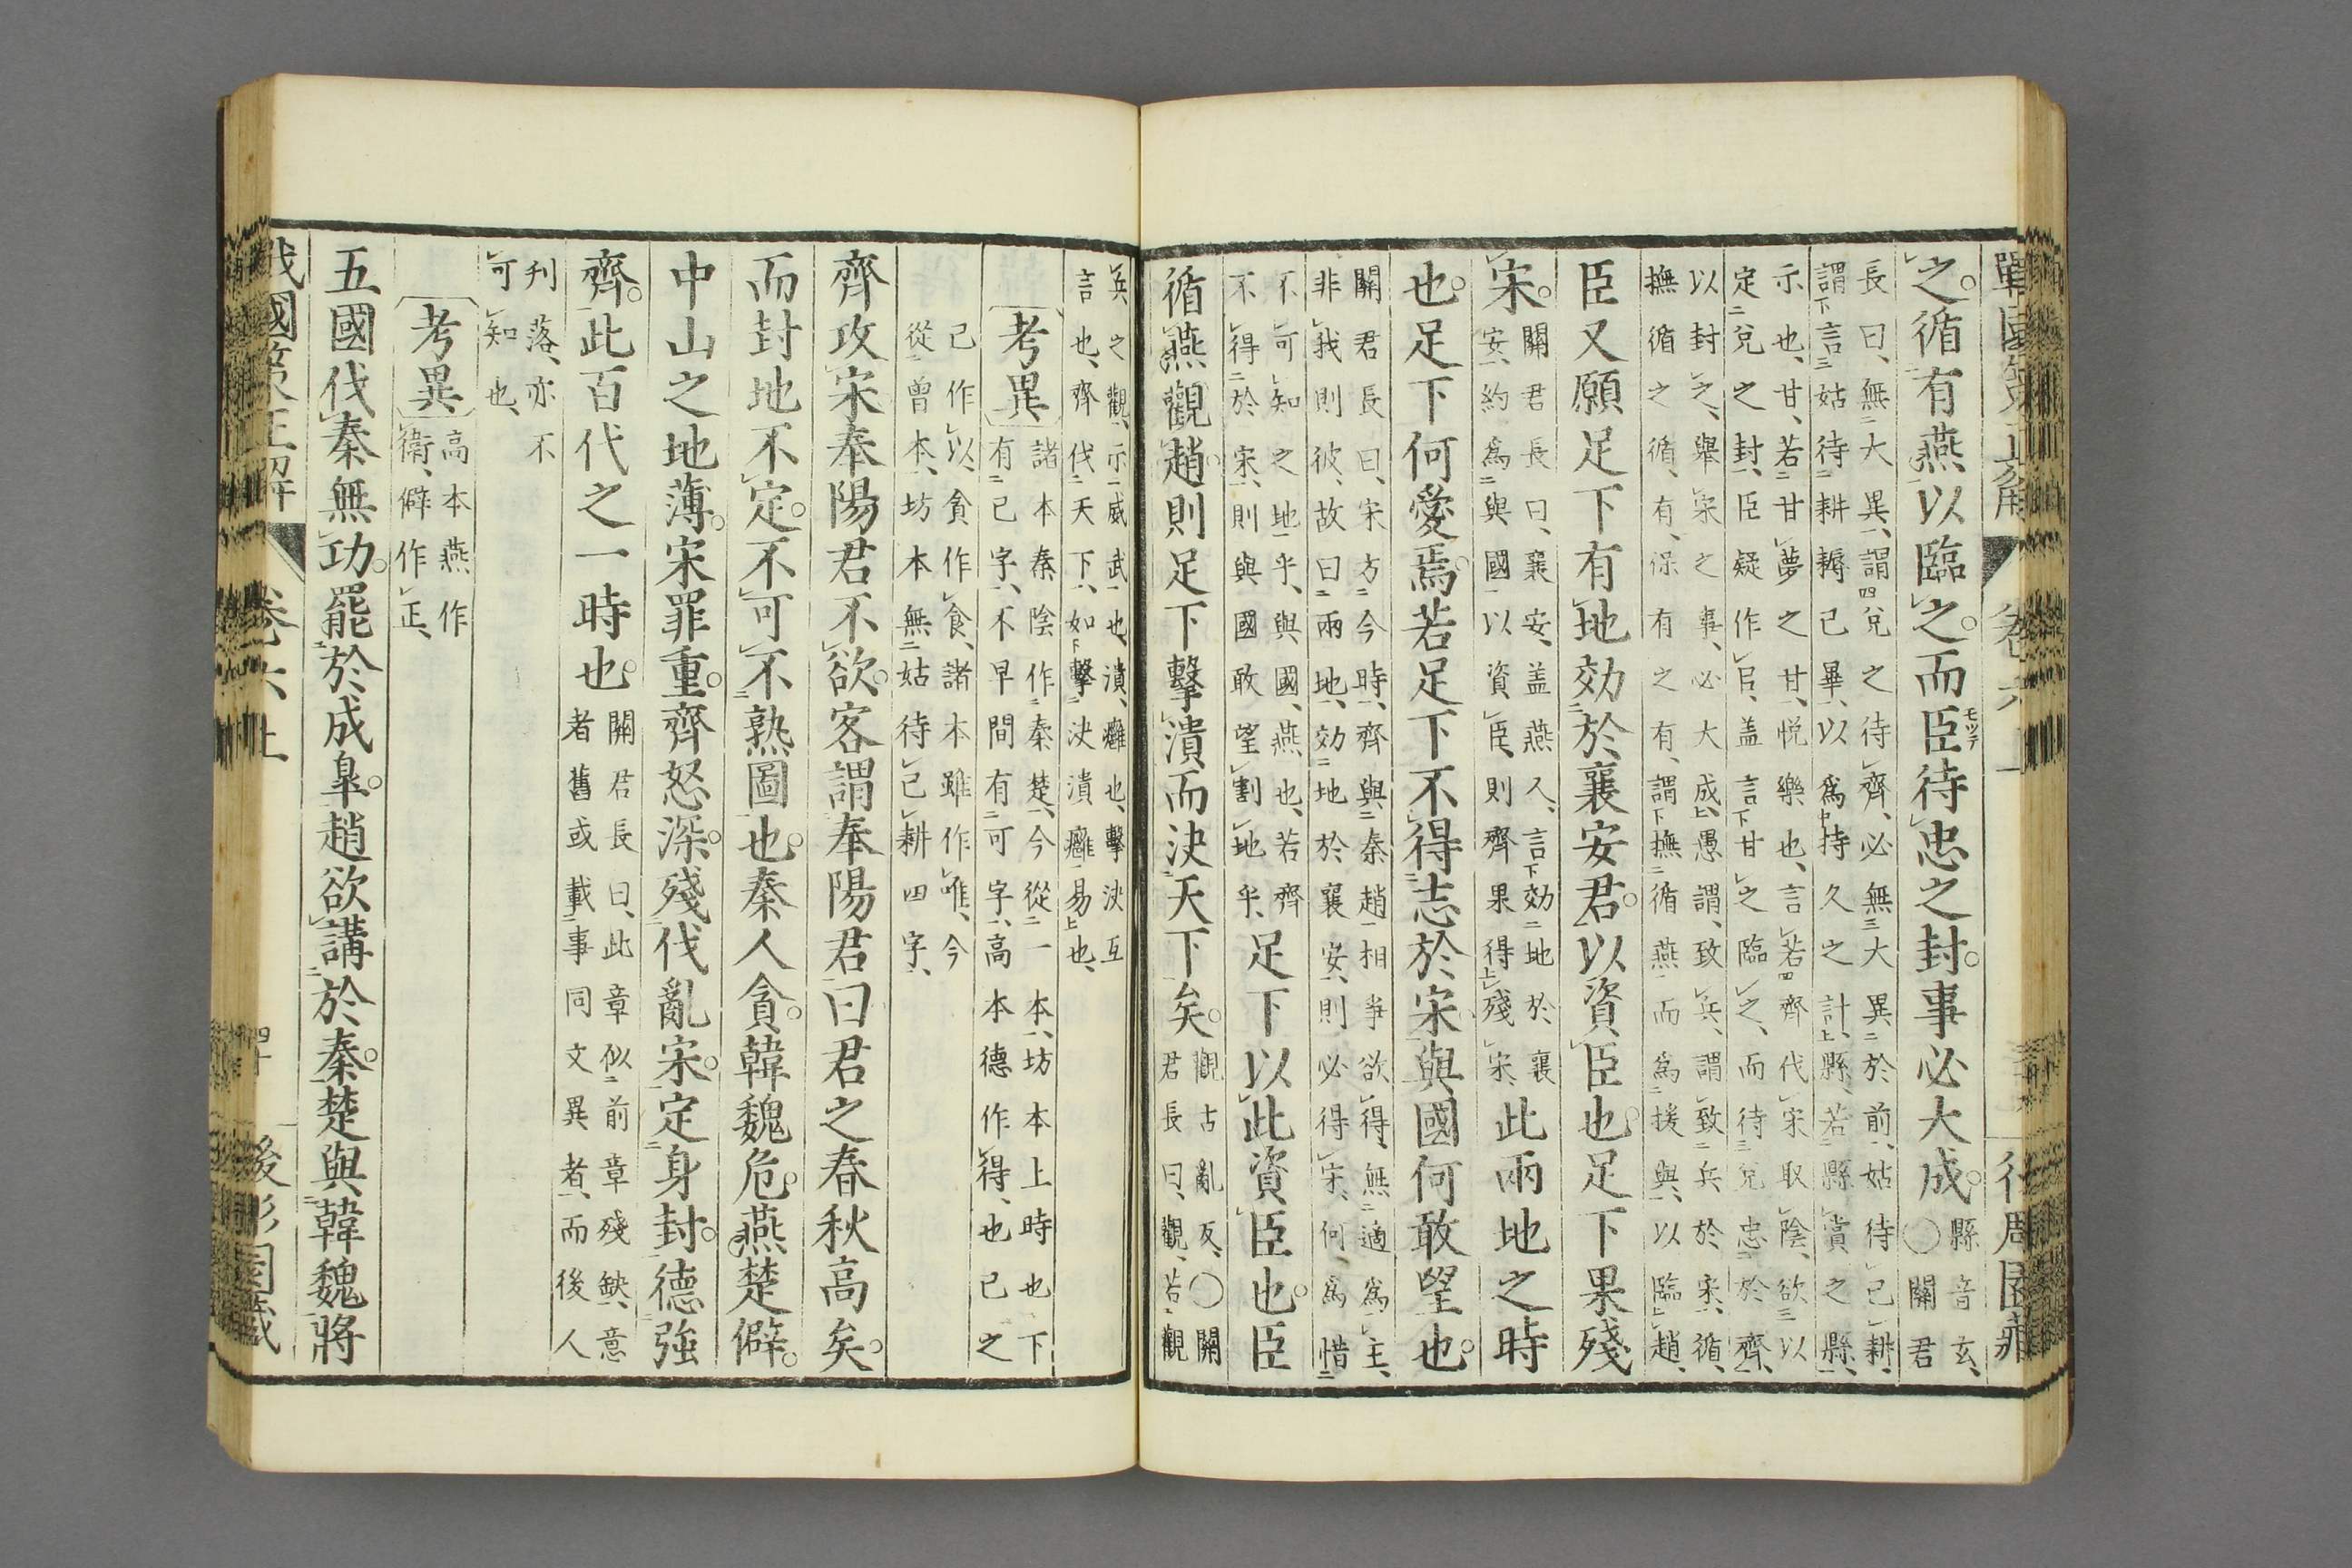 之循有燕以臨之而臣待忠之封事必大成
縣音玄、
○關君
長曰、無大異、謂兌之待齊、必無大異於前、姑待已耕、
謂言姑待耕耨已畢、以爲持久之計、縣、若縣賞之縣、
示也、甘、若甘夢之甘、悅樂也、言若齊代宋取陰、欲以
定兌之封、臣疑作官、盖言甘之臨之、而待兌忠於齊、
以封之、舉宋之事、必大成、愚謂、致兵、謂致兵於宋、循、
撫循之循、有、保有之有、謂撫循燕而爲援與、以臨趙、
臣又願足下有地効於襄安君以資臣也足下果殘
宋
關君長曰、襄安、盖燕人、言効地於襄
安、約爲與國以資臣、則齊果得殘宋
此兩地之時
也足下何愛焉若足下不得志於宋與國何敢望也
關君長曰、宋方今時、齊與秦趙相爭欲得、無適爲主、
非我則彼、故曰兩地、効地於襄安、則必得宋、何爲惜
不可知之地乎、與國、燕也、若齊
不得於宋、則與國敢望割地乎、
足下以此資臣也臣
循燕觀趙則足下擊潰而決天下矣
觀古亂反、○關
君長曰、觀、若觀
兵之觀、示威武也、潰、癰也、擊決互
言也、齊伐天下、如擊決潰癰易也、
考異
諸本秦陰作秦楚、今從一本、坊本上時也下
有已字、不早間有可字、高本德作得、也已之
已作以、貪作食、諸本雖作唯、今
從曾本、坊本無姑待已耕四字、
齊攻宋奉陽君不欲客謂奉陽君曰君之春秋高矣
而封地不定不可不熟圖也秦人貪韓魏危燕楚僻
中山之地薄宋罪重齊怒深殘伐亂宋定身封德強
齊此百代之一時也
關君長曰、此章似前章殘缺、意
者舊或載事同文異者、而後人
刋落、亦不
可知也、
考異
高本燕作
衞、僻作正、
五國伐秦無功罷於成皐趙欲講於秦楚與韓魏將
戰國策正解
卷六上
後彫園藏